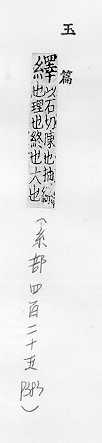 玉篇
繹以石切陳也抽絲
也理也終也大也
(糸部四百二十五 P383)